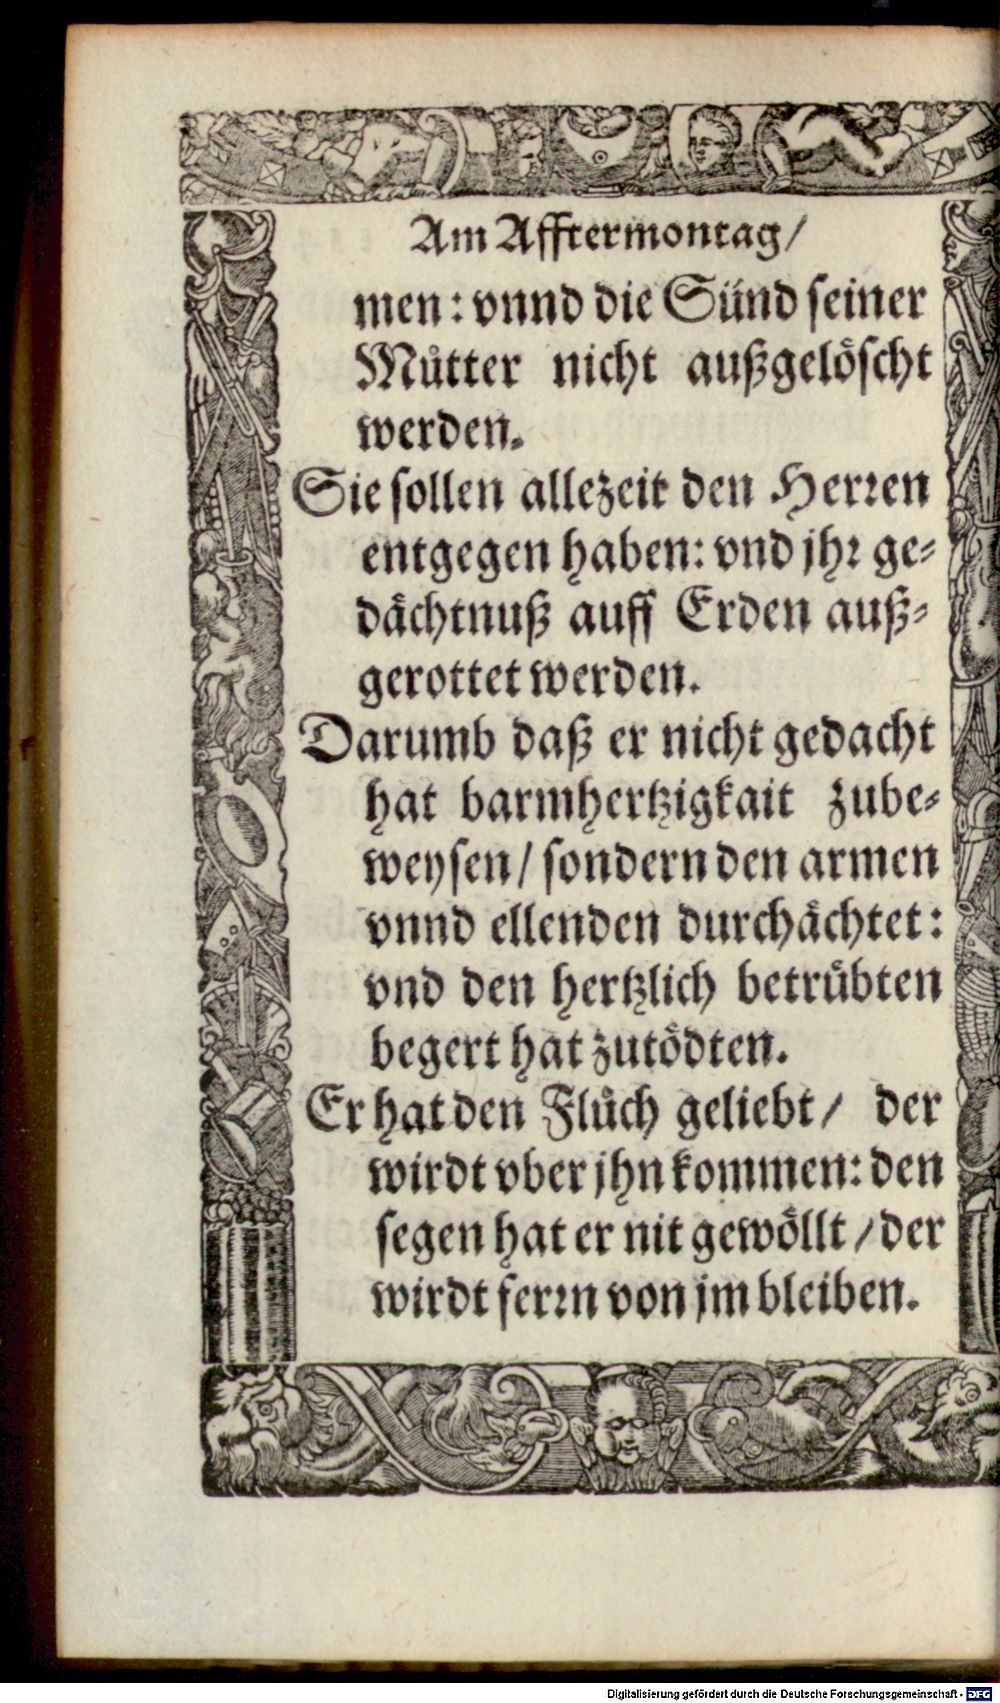 Am Afftermontag/
men: vnnd die Sünd seiner
Můtter nicht außgelöscht
werden.
Sie sollen allezeit den Herren
entgegen haben: vnd jhr ge-
dächtnuß auff Erden auß-
gerottet werden.
Darumb daß er nicht gedacht
hat barmhertzigkait zube-
weysen/ sondern den armen
vnnd ellenden durchächtet:
vnd den hertzlich betrübten
begert hat zutödten.
Er hat den Flůch geliebt/ der
wirdt vber jhn kommen: den
segen hat er nit gewöllt/ der
wirdt ferrn von jm bleiben.
Digitalisierung gefördert durch die Deutsche Forschungsgemeinschaft - DFG